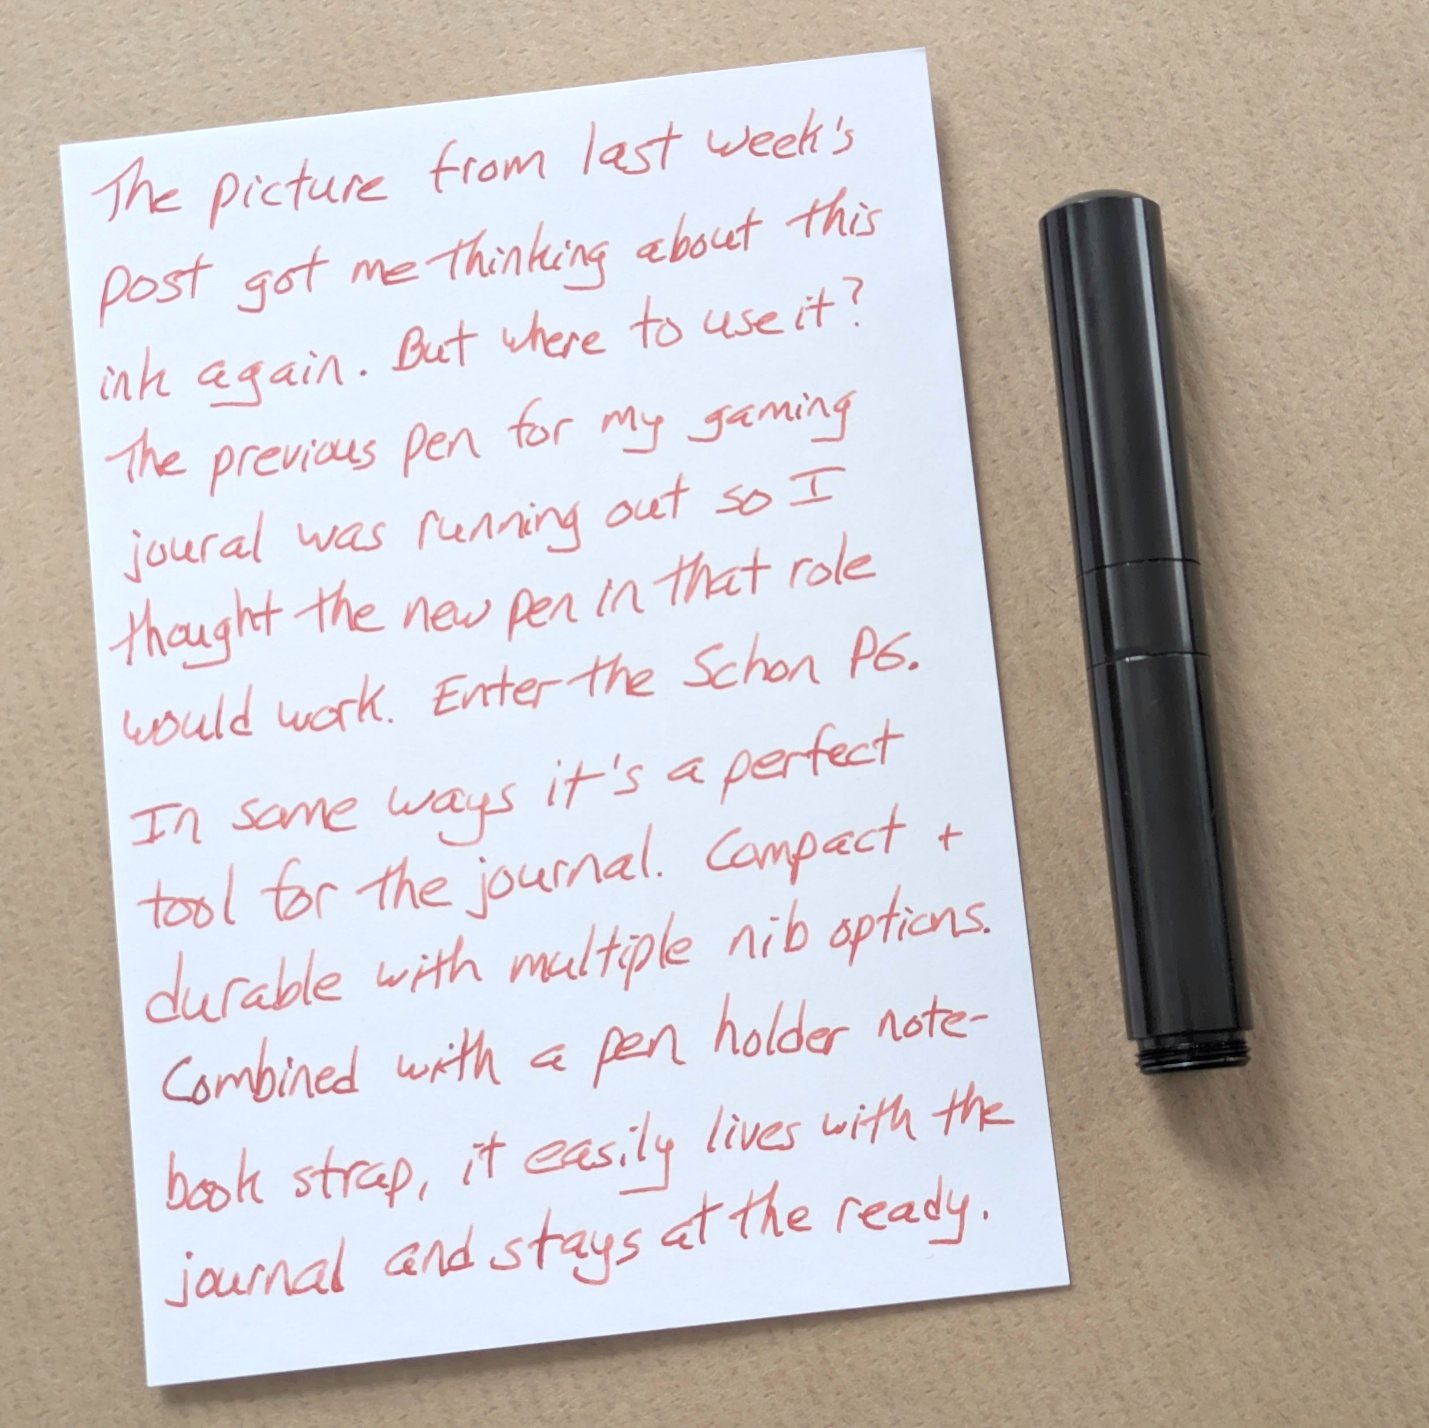 The picture from last week's
post got me thinking about this
ink again. But where to use it?
The previous pen for my gaming
joural was running out so I
thought the new pen in that role
would work. Enter the Schon P6.
In some ways it's a perfect
tool for the journal. Compact +
durable with multiple nib options.
Combined with a pen holder note-
book strap, it easily lives with the
journal and stays at the ready.